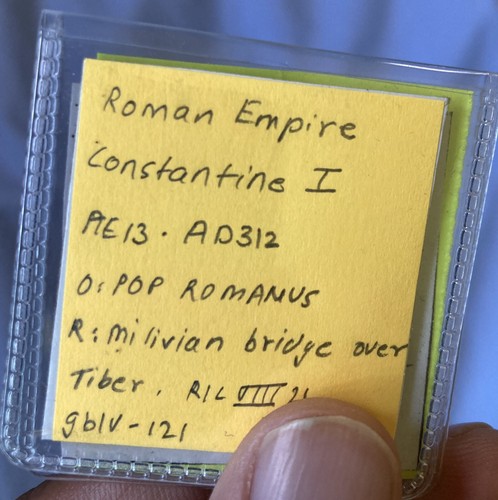 Roman Empire
Constantine I
AE13. AD312
O: POP ROMANUS
R: milivian bridge over
Tiber. RIC VIII 21
gblv-121